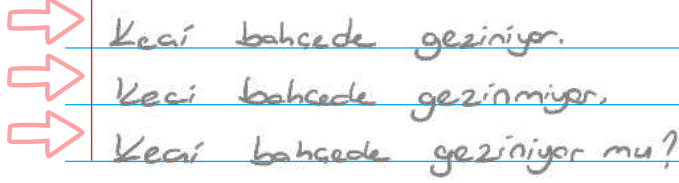 Keçi bahçede geziniyor.
Keçi bahçede gezinmiyor.
Keçi bahçede geziniyor mu?